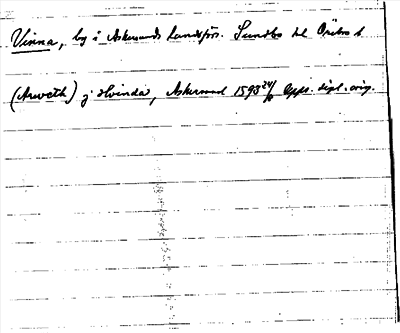 Vinna, by i Askersunds landsförs. Sundbo hd Örebro l.
(Arweth) j Hvinda, Askersund 1595 24/6 Upps. dipl. orig.